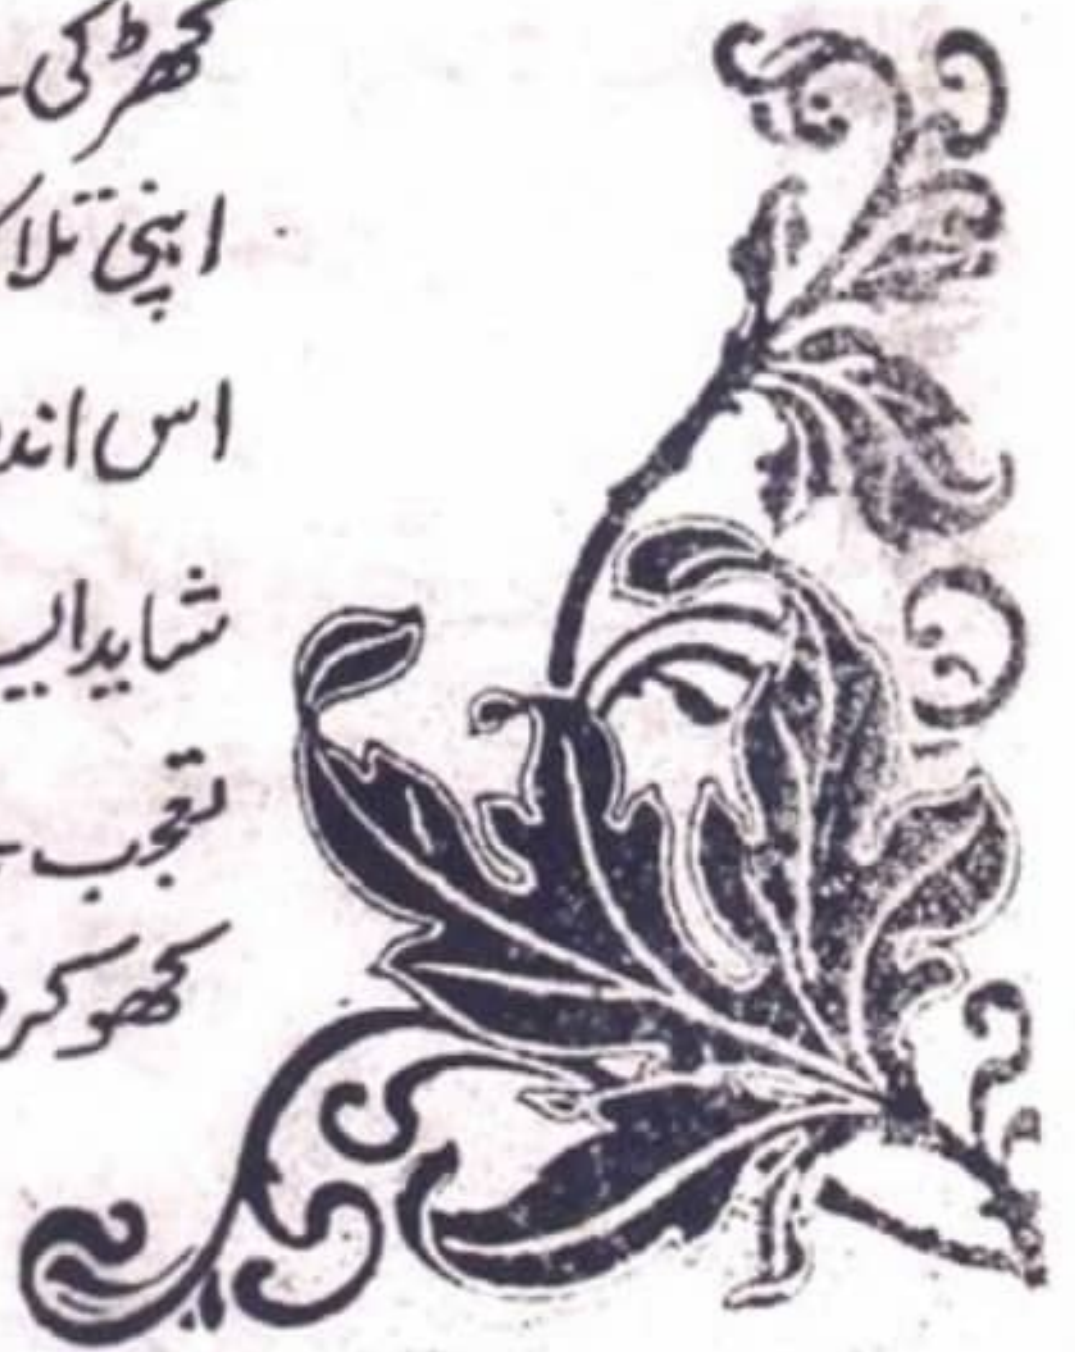 کھڑکی
اپنی تلا
اس اند
شاید ایس
تعجب
کھو کر